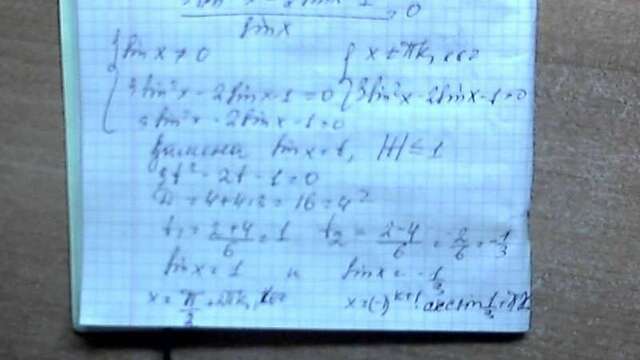 sin x ≠ 0 { x ≠ πk, k∈Z
3sin²x - 2sin x - 1 = 0 { 3sin²x - 2sin x - 1 = 0
sin²x - 2sin x - 1 = 0
Замена sin x = t, |t| ≤ 1
3t² - 2t - 1 = 0
D = 4 + 4·12 = 16 = 4²
t₁ = (2+4)/6 = 1 t₂ = (2-4)/6 = -2/6 = -1/3
sin x = 1 и sin x = -1/3
x = π/2 + 2πk, x = (-)ᵏ⁺¹ arcsin 1/3 + πk